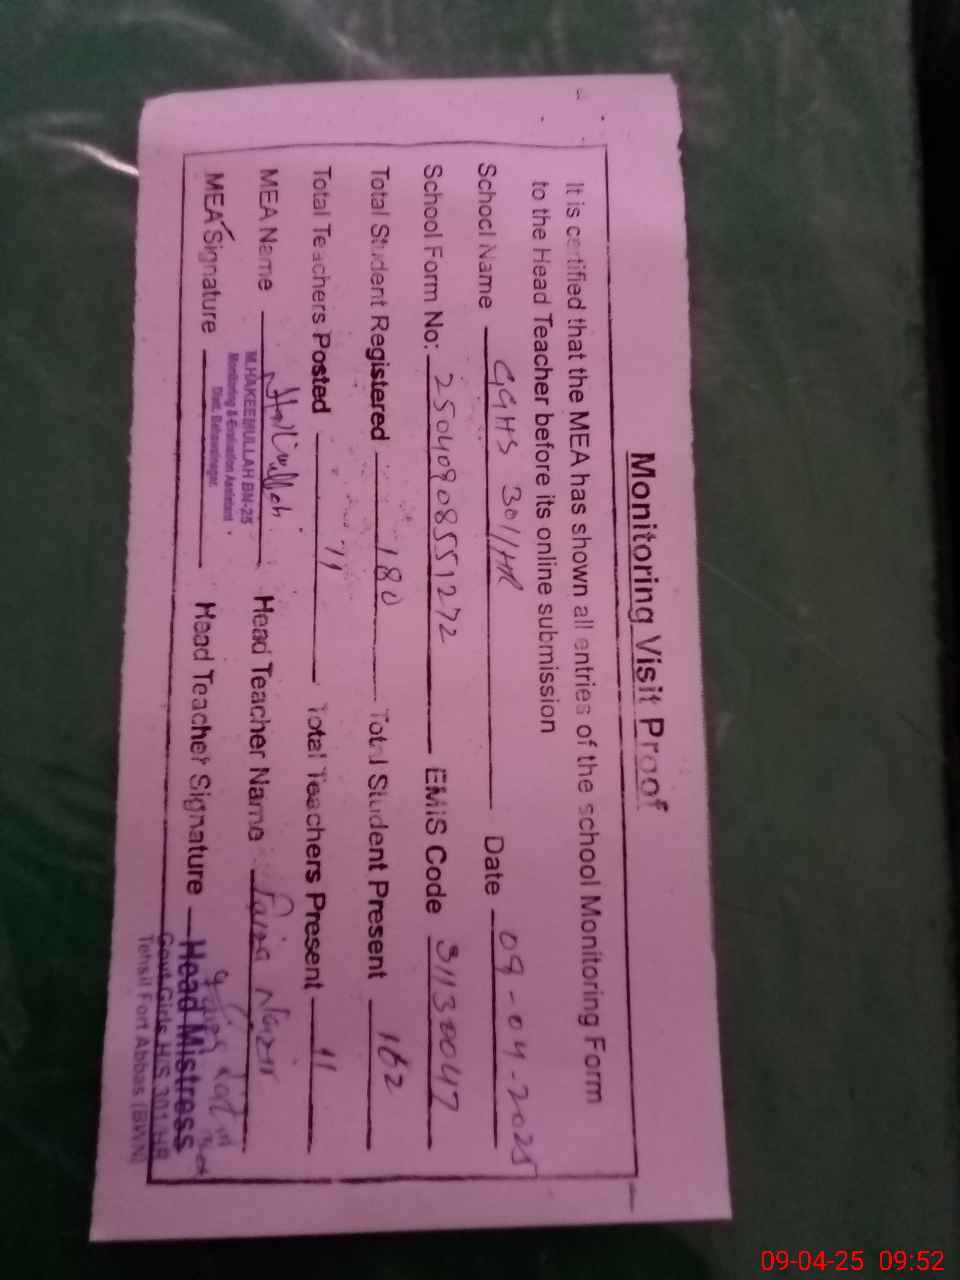 Monitoring Visit Proof
It is certified that the MEA has shown all entries of the school Monitoring Form
to the Head Teacher before its online submission
School Name GGHS 301/HR Date 09-04-2025
School Form No: 25040908551272 EMIS Code 31130047
Total Student Registered 180 Total Student Present 162
Total Teachers Posted 11 Total Teachers Present 11
MEA Name Head Teacher Name Faiza Nazir
M.HAKEEMULLAH BN-25
Monitoring & Evaluation Assistant
Distt. Bahawalnagar.
MEA Signature Head Teacher Signature
Head Mistress
Govt Girls H/S 301/HR
Tehsil Fort Abbas (BWN)
09-04-25 09:52